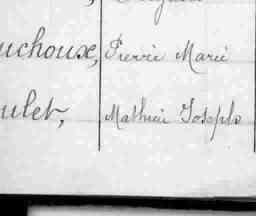 uchoux, Pierre Marie
ulet, Mathieu Joseph